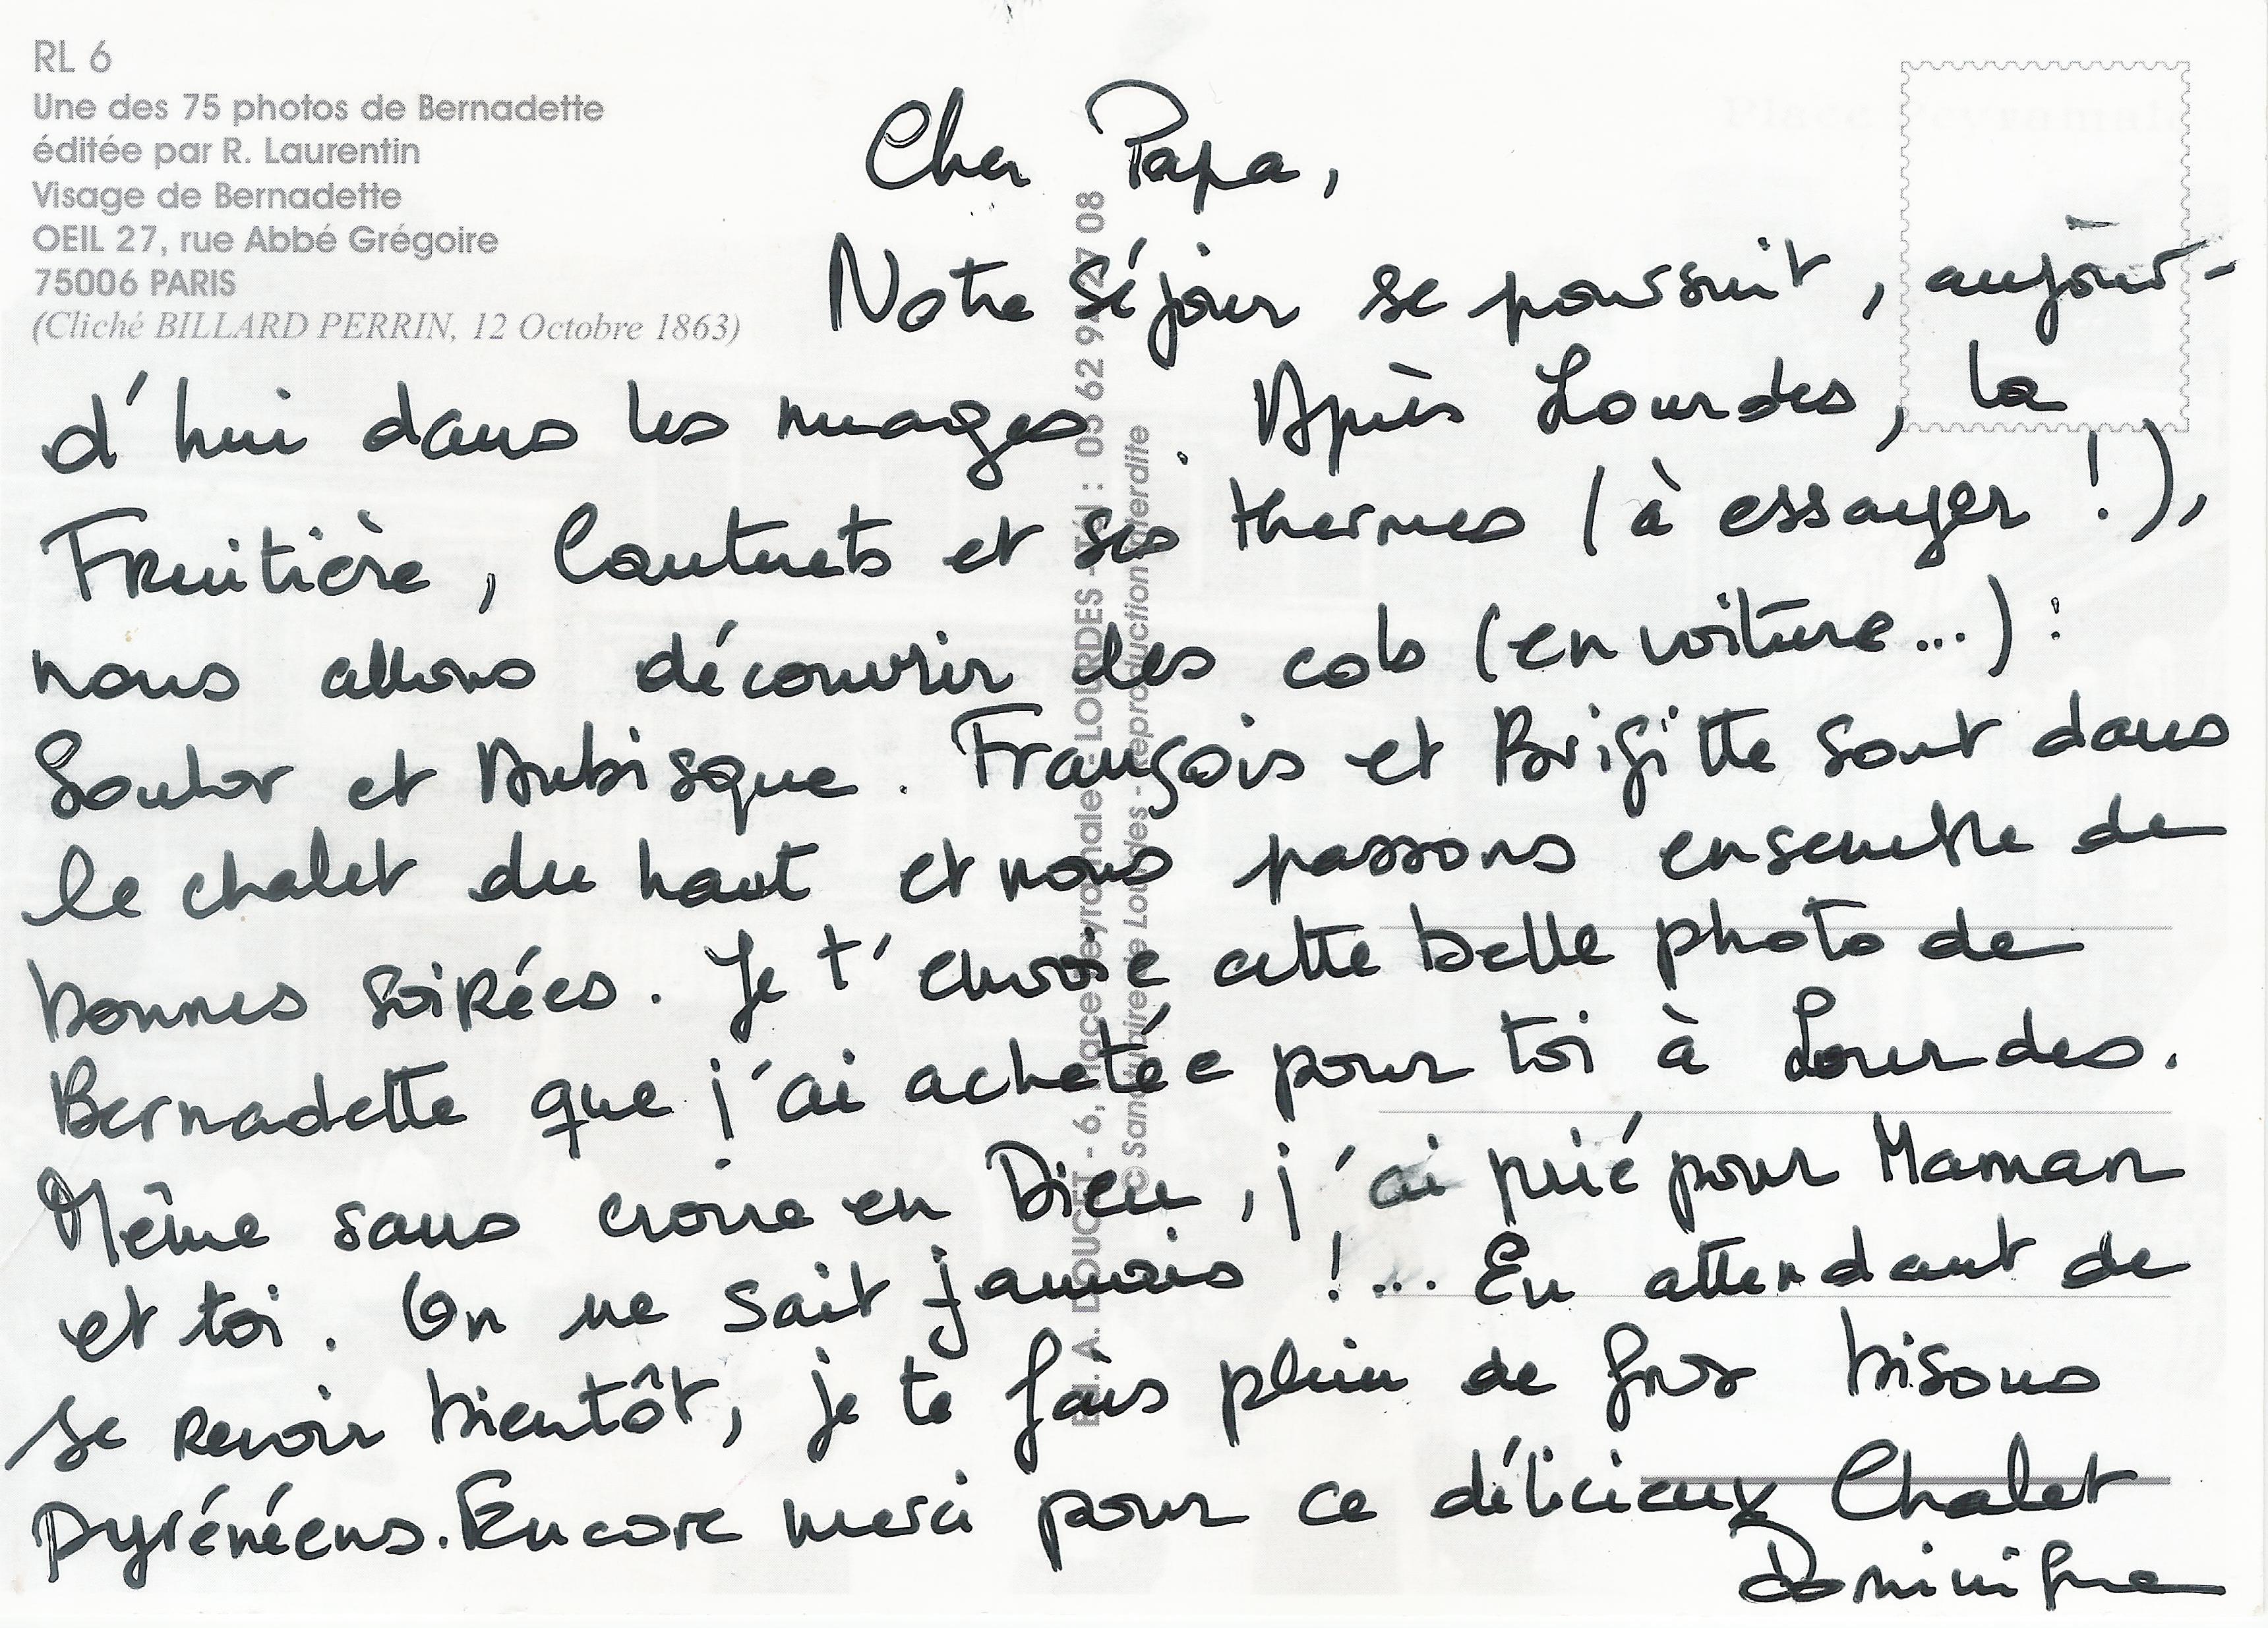 RL 6
Une des 75 photos de Bernadette
éditée par R. Laurentin
Visage de Bernadette
OEIL 27, rue Abbé Grégoire
75006 PARIS
(Cliché BILLARD PERRIN, 12 Octobre 1863)
Cher Papa,
Notre séjour se poursuit, aujour-
d'hui dans les nuages. Après Lourdes, la
Fruitière, Cauterets et ses thermes (à essayer !),
nous allons découvrir des cols (en voiture...) :
Soulor et Aubisque. François et Brigitte sont dans
le chalet du haut et nous passons ensemble de
bonnes soirées. Je t'envoie cette belle photo de
Bernadette que j'ai achetée pour toi à Lourdes.
Même sans croire en Dieu, j'ai prié pour Maman
et toi. On ne sait jamais !... En attendant de
se revoir bientôt, je te fais plein de gros bisous
pyrénéens. Encore merci pour ce délicieux Chalet
Dominique
A. DOUCET - 6, place Peyramale - LOURDES - Tél : 05 62 94 27 08
© Sanctuaire de Lourdes - Reproduction interdite